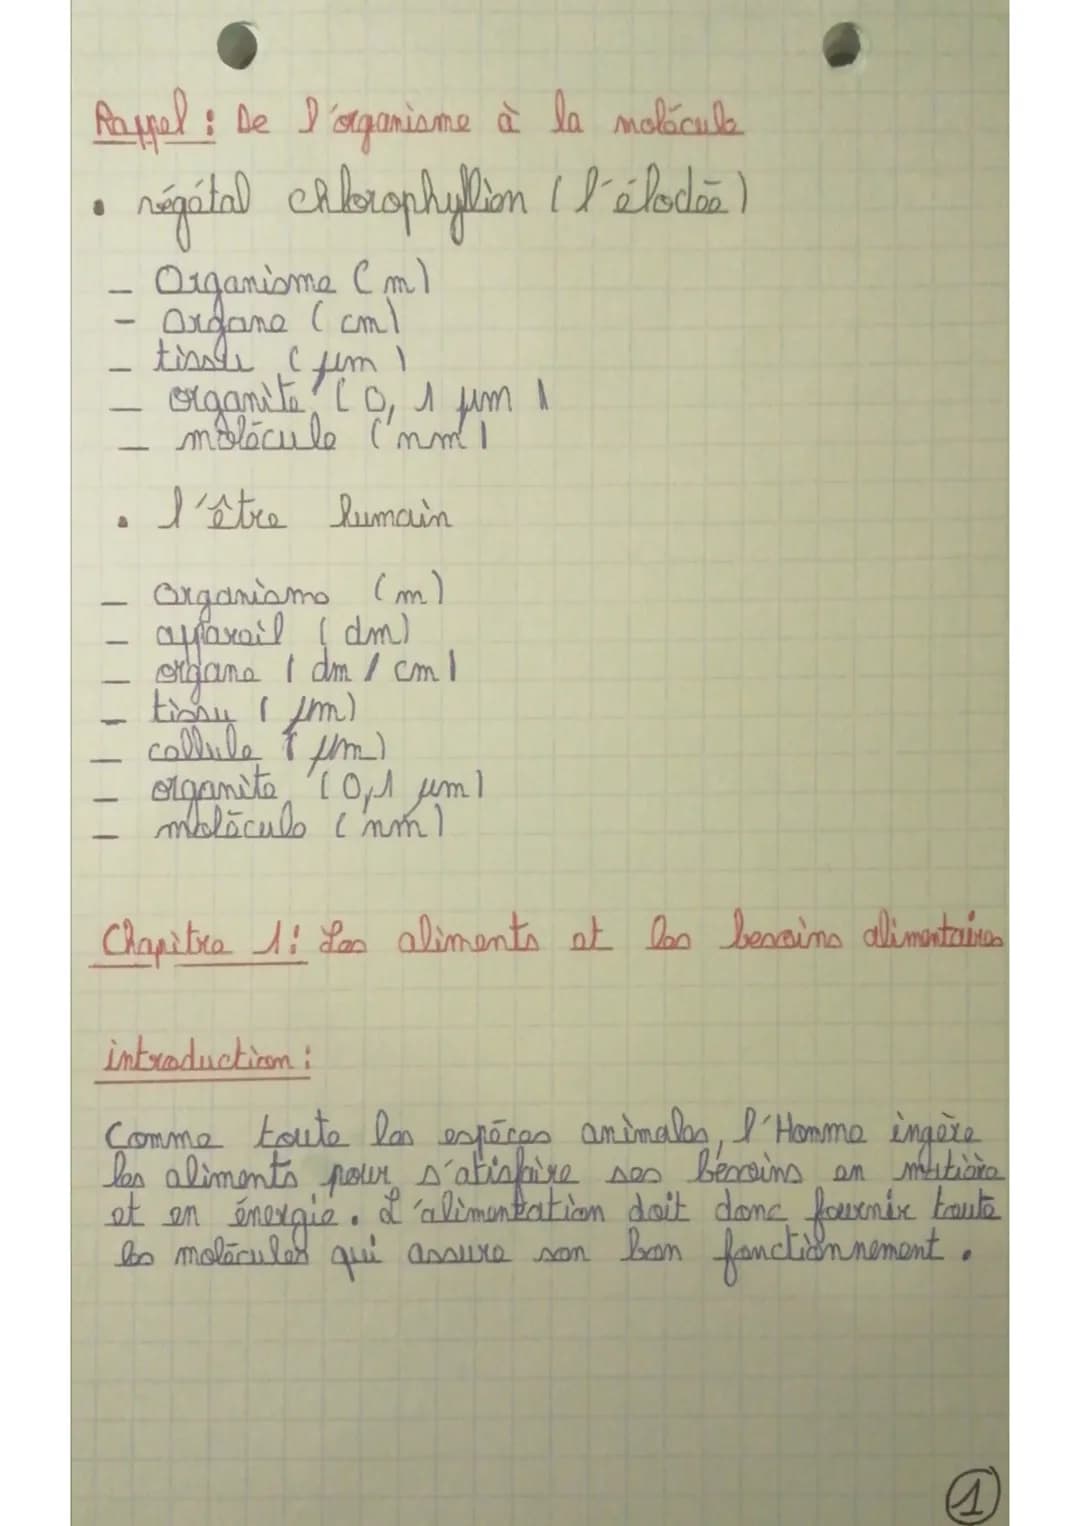 Rappel : De l'organisme à la molécule
• végétal chlorophyllien (l'élodée)
– Organisme (m)
– Organe (cm)
– tissu (µm)
– organite (0,1 µm)
– molécule (nm)
• l'être humain
– organisme (m)
– appareil (dm)
– organe (dm / cm)
– tissu (µm)
– cellule (µm)
– organite (0,1 µm)
– molécule (nm)
Chapitre 1 : Les aliments et les besoins alimentaires
introduction :
Comme toute les espèces animales, l'Homme ingère
les aliments pour s'atisfaire ses bésoins en matière
et en énergie. L'alimentation doit donc fournir toute
les molécules qui assure son bon fonctionnement.
1